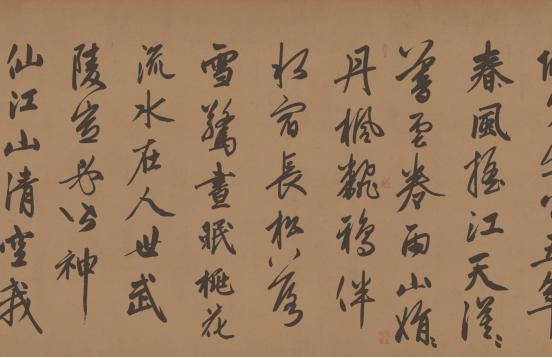 五年
春風搖江天漠〻
暮雲卷雨山娟〻
丹楓翻鴉伴
水宿長松落
雪驚晝眠桃花
流水在人世武
陵豈必皆神
仙江山清空我